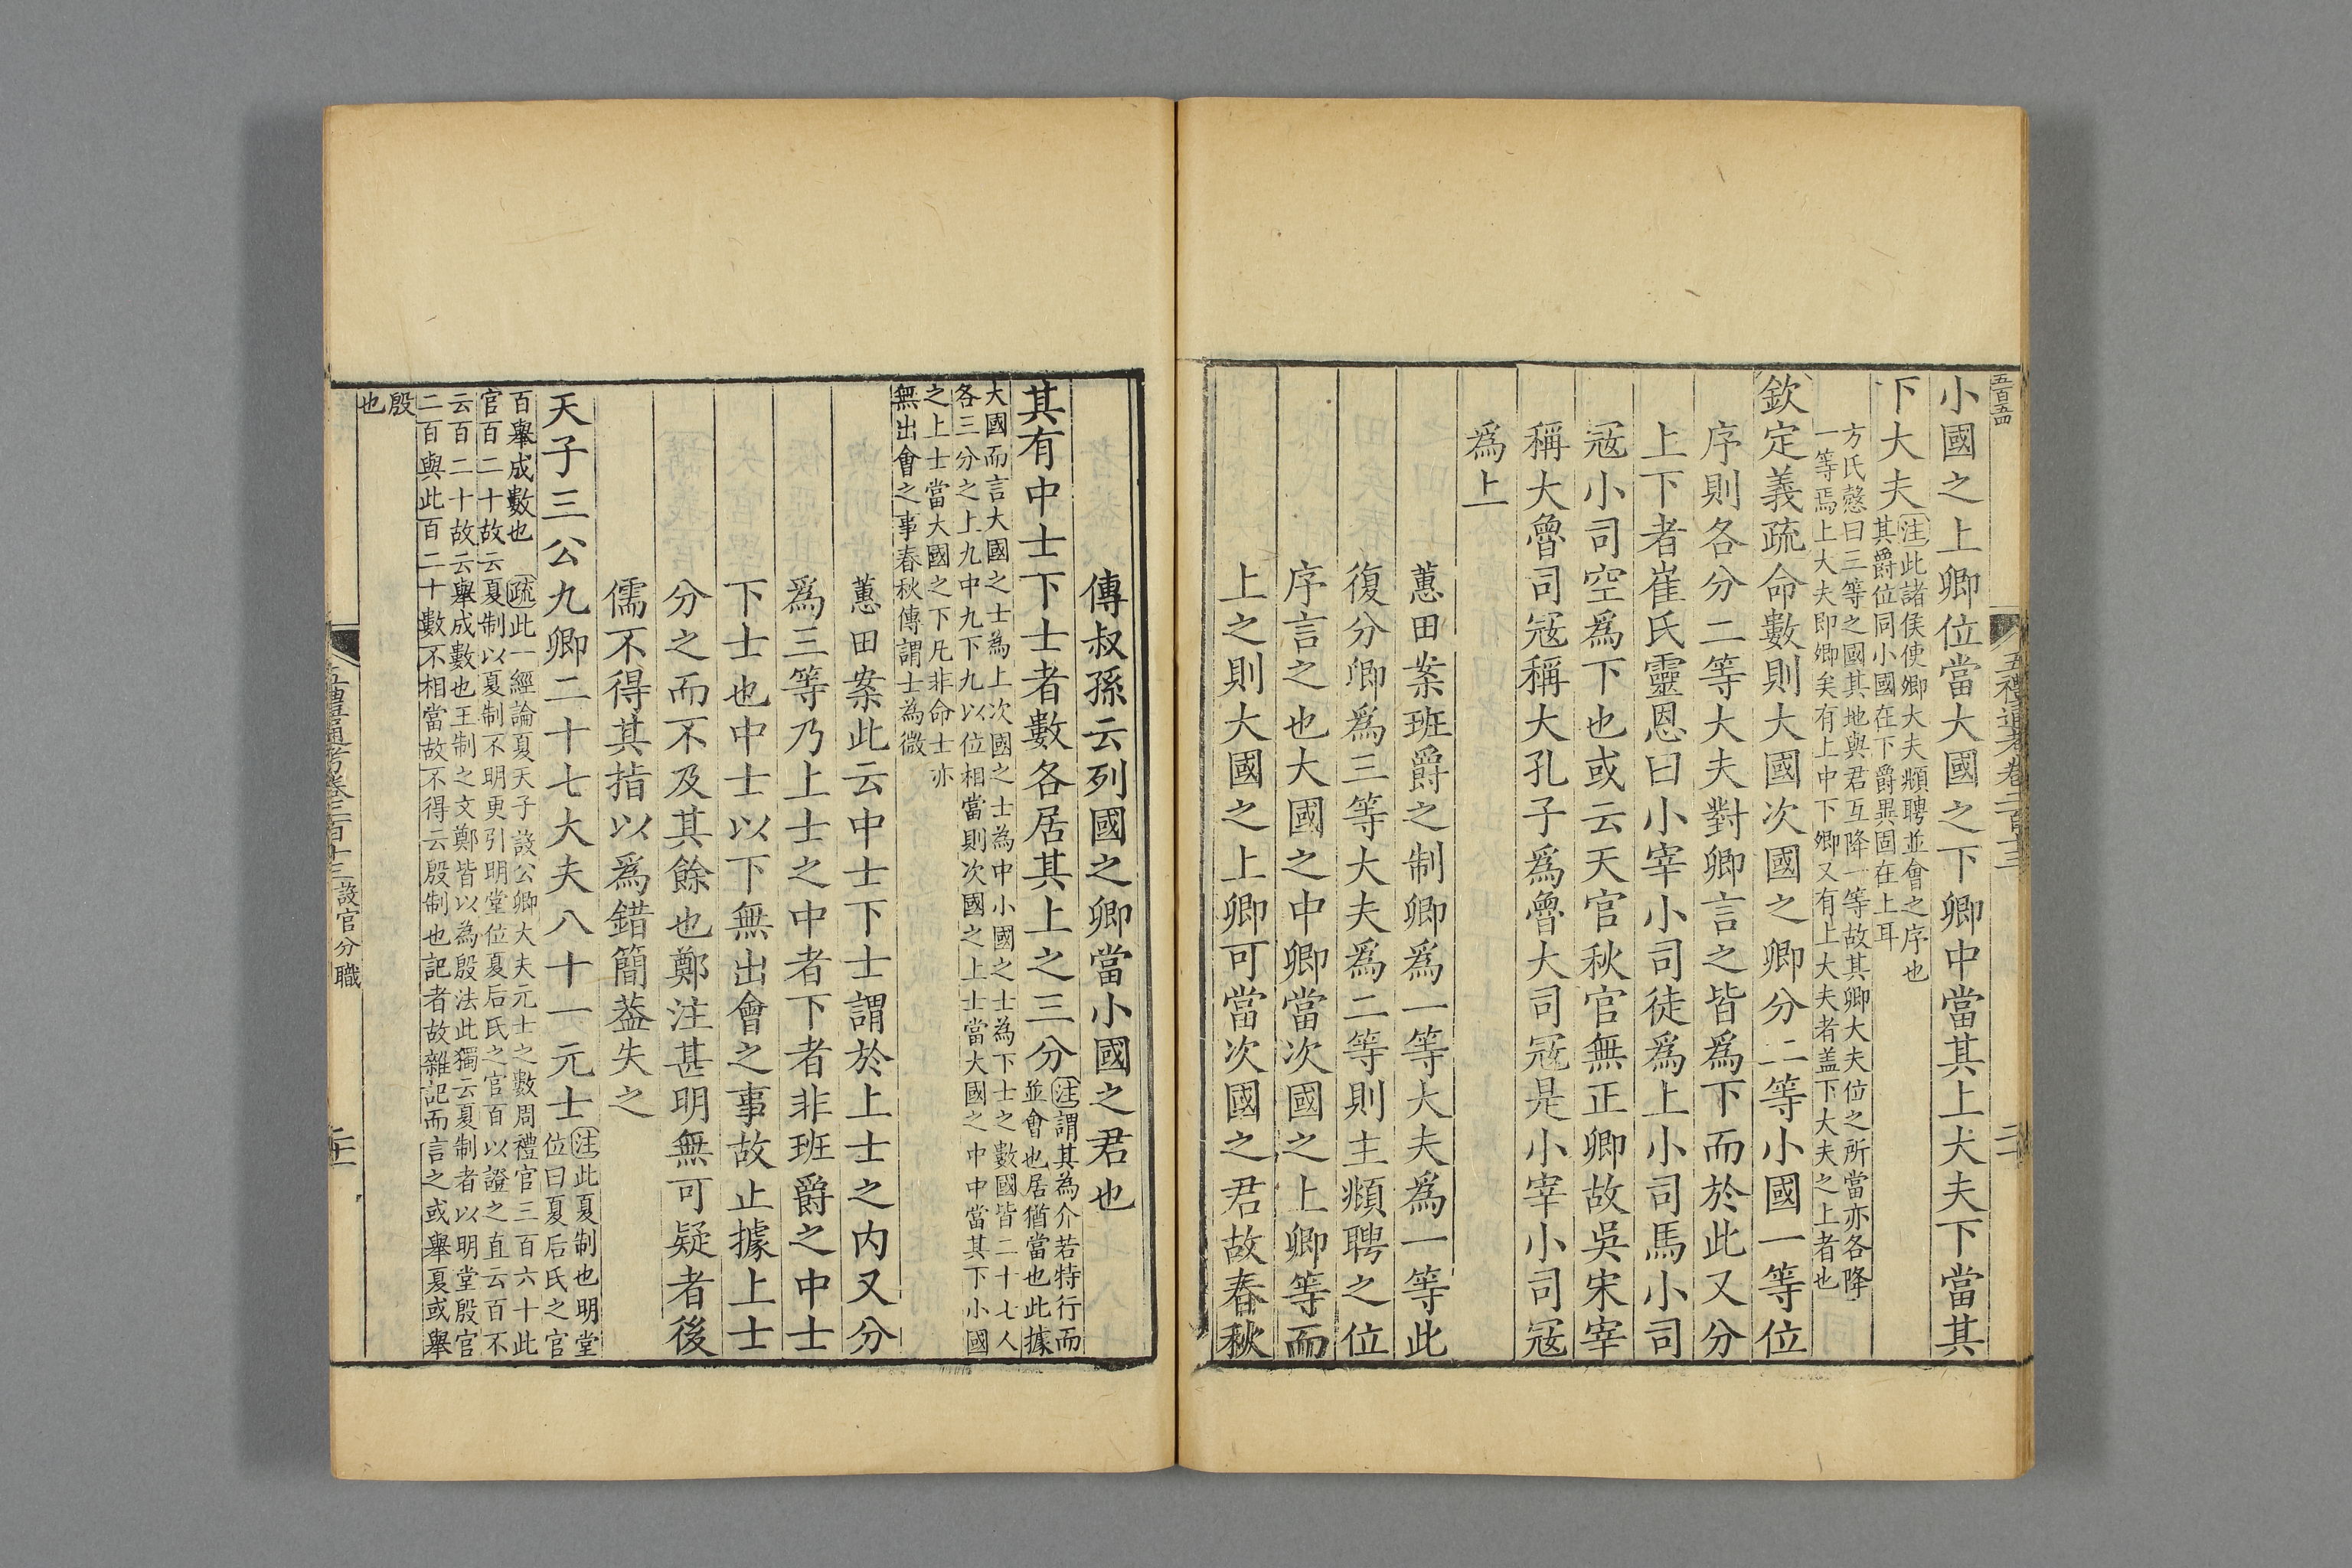 小國之上卿位當大國之下卿中當其上大夫下當其
下大夫
注此諸侯使卿大夫頫聘並會之序也
其爵位同小國在下爵異固在上耳
方氏慤曰三等之國其地與君互降一等故其卿大夫位之所當亦各降
一等焉上大夫即卿矣有上中下卿又有上大夫者盖下大夫之上者也
欽定義疏命數則大國次國之卿分二等小國一等位
序則各分二等大夫對卿言之皆爲下而於此又分
上下者崔氏靈恩曰小宰小司徒爲上小司馬小司
冦小司空爲下也或云天官秋官無正卿故吳宋宰
稱大魯司冦稱大孔子爲魯大司冦是小宰小司冦
爲上
蕙田案班爵之制卿爲一等大夫爲一等此
復分卿爲三等大夫爲二等則主頫聘之位
序言之也大國之中卿當次國之上卿等而
上之則大國之上卿可當次國之君故春秋
傳叔孫云列國之卿當小國之君也
其有中士下士者數各居其上之三分
注謂其為介若特行而
並會也居猶當也此據
大國而言大國之士為上次國之士為中小國之士為下士之數國皆二十七人
各三分之上九中九下九以位相當則次國之上士當大國之中中當其下小國
之上士當大國之下凡非命士亦
無出會之事春秋傳謂士為微
蕙田案此云中士下士謂於上士之内又分
爲三等乃上士之中者下者非班爵之中士
下士也中士以下無出會之事故止據上士
分之而不及其餘也鄭注甚明無可疑者後
儒不得其指以爲錯簡葢失之
天子三公九卿二十七大夫八十一元士
注此夏制也明堂
位曰夏后氏之官
百舉成數也
疏此一經論夏天子設公卿大夫元士之數周禮官三百六十此
官百二十故云夏制以夏制不明更引明堂位夏后氏之官百以證之直云百不
云百二十故云舉成數也王制之文鄭皆以為殷法此獨云夏制者以明堂殷官
二百與此百二十數不相當故不得云殷制也記者故雜記而言之或舉夏或舉
殷
也
五禮通考卷二百十三 設官分職